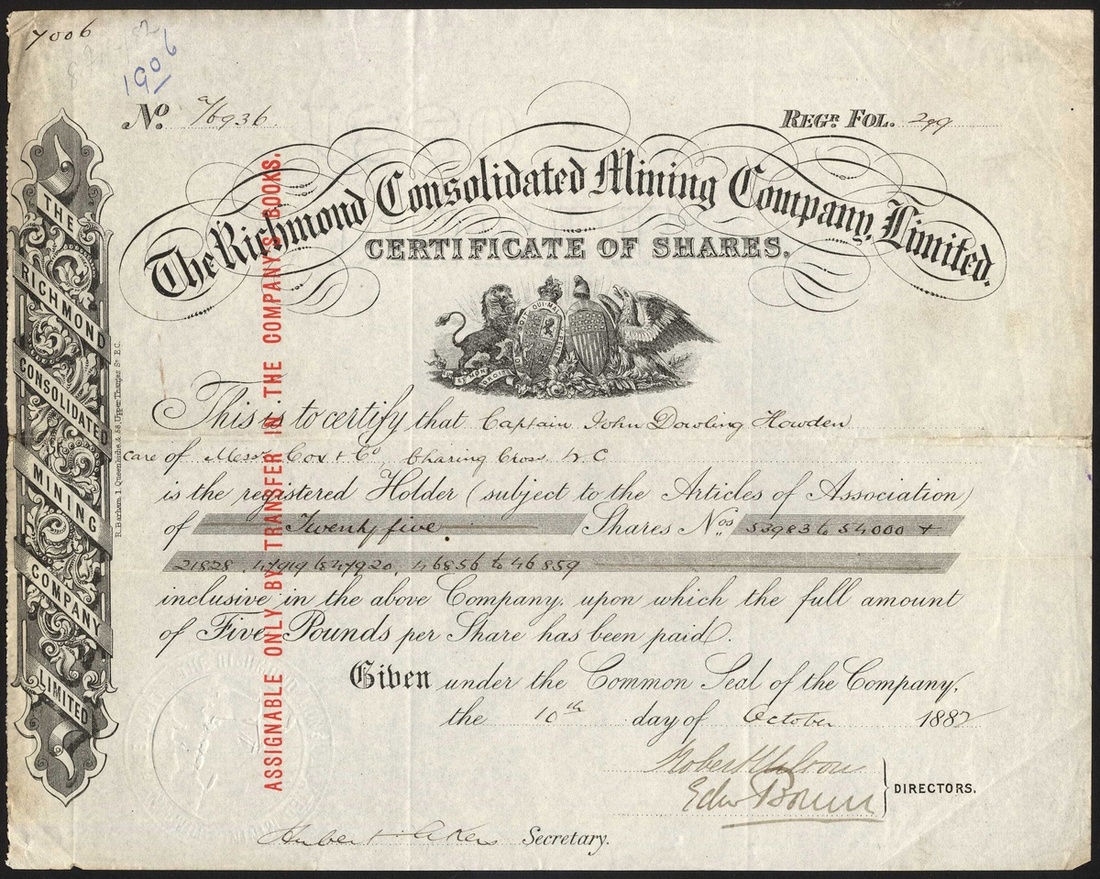 7006
1906
No. a/6936
REGR. FOL. 299
The Richmond Consolidated Mining Company, Limited.
CERTIFICATE OF SHARES.
This is to certify that Captain John Dowling Howden
care of Messrs Cox & Co Charing Cross W C
is the registered Holder (subject to the Articles of Association)
of Twenty five Shares Nos. 53983 to 54000 +
21828, 47919 to 47920, 46856 to 46859
inclusive in the above Company, upon which the full amount
of Five Pounds per Share has been paid.
Given under the Common Seal of the Company,
the 10th day of October 1882
DIRECTORS.
Secretary.
ASSIGNABLE ONLY BY TRANSFER IN THE COMPANY'S BOOKS.
THE
RICHMOND
CONSOLIDATED
MINING
COMPANY
LIMITED